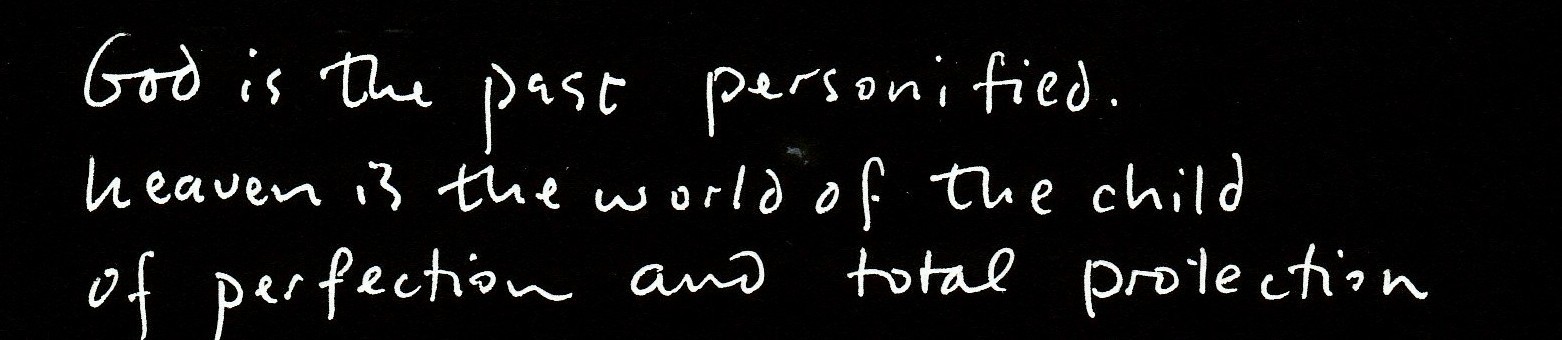 God is the past personified.
heaven is the world of the child
of perfection and total protection